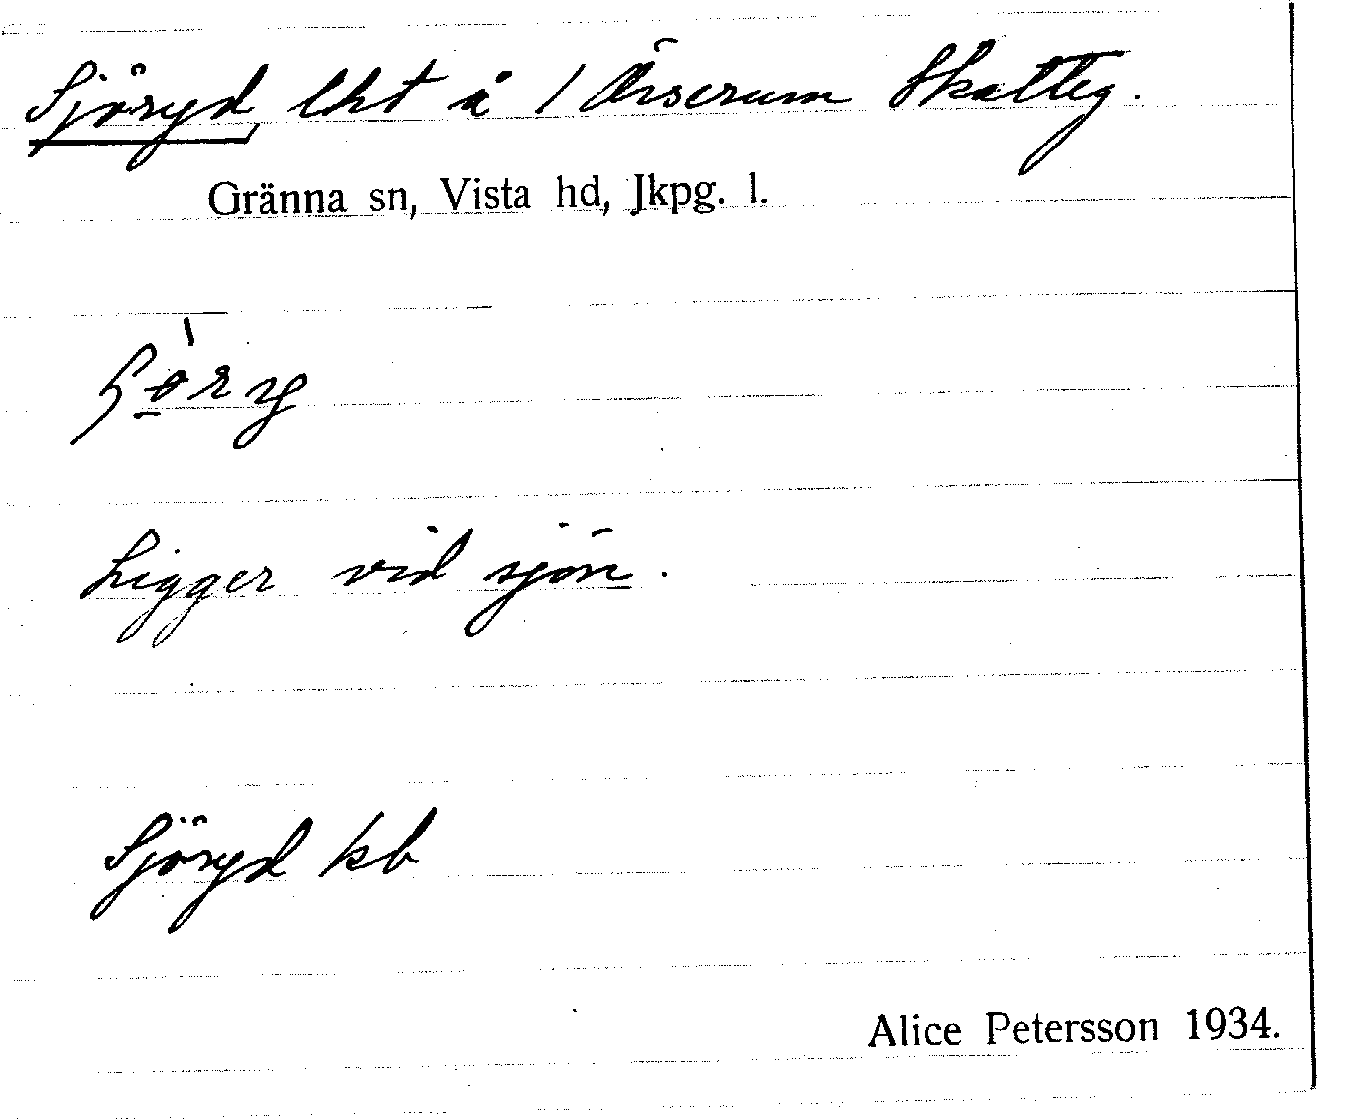 Sjöryd, lht å 1 Örserum Skatteg.
Gränna sn, Vista hd, Jkpg. l.
Ligger vid sjön.
Sjöryd kb
Alice Petersson 1934.